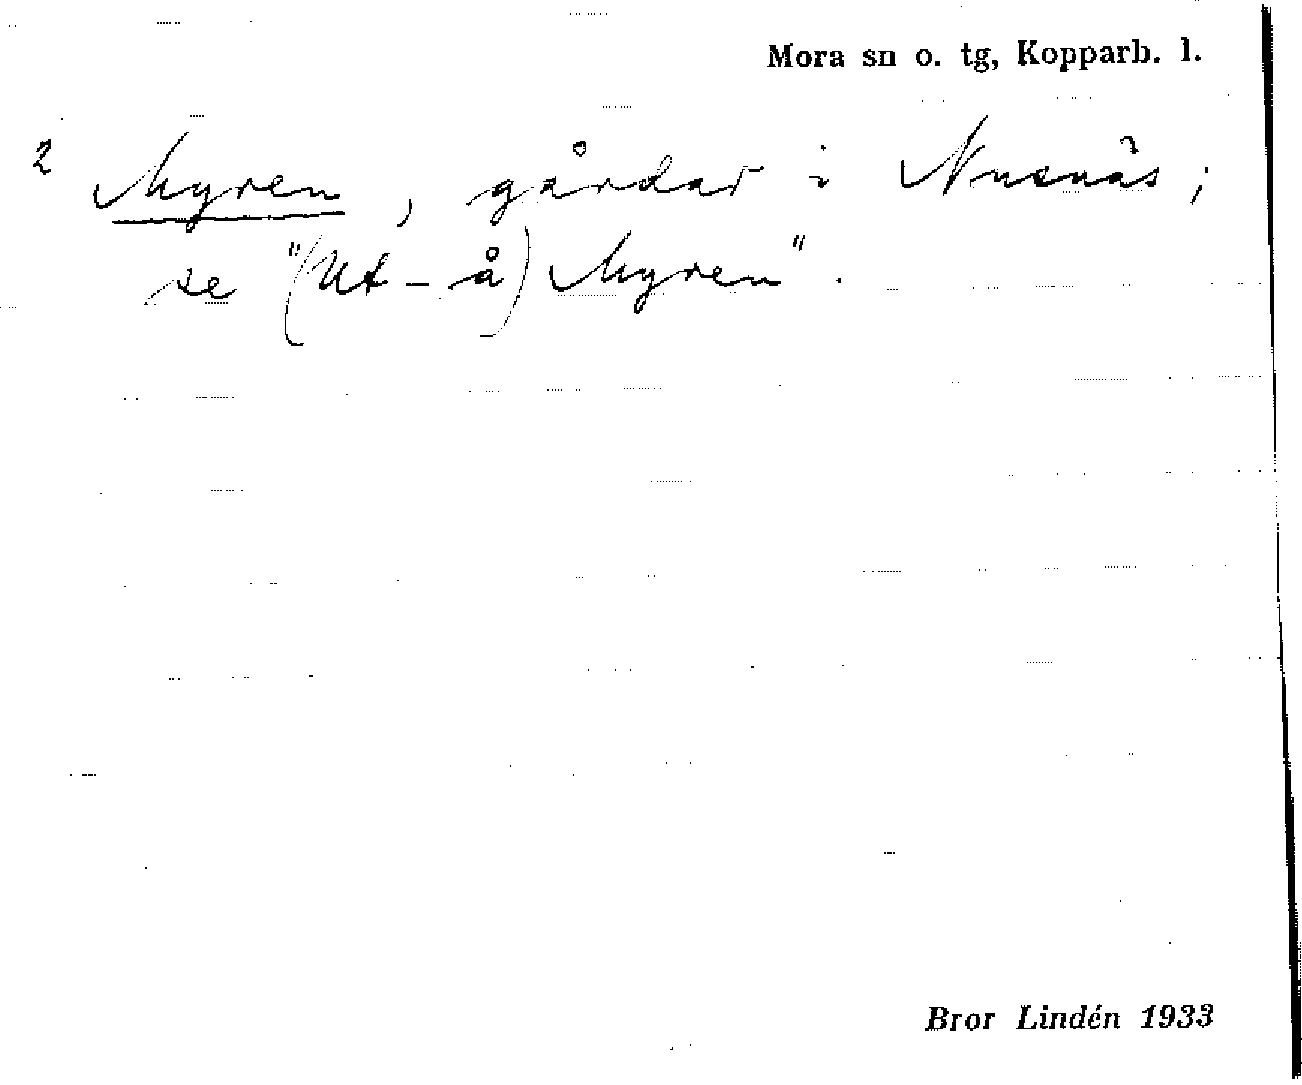 Mora sn o. tg, Kopparb. l.
2 Myren, gårdar i Nusnäs;
se "(Ut-å) Myren".
Bror Lindén 1933